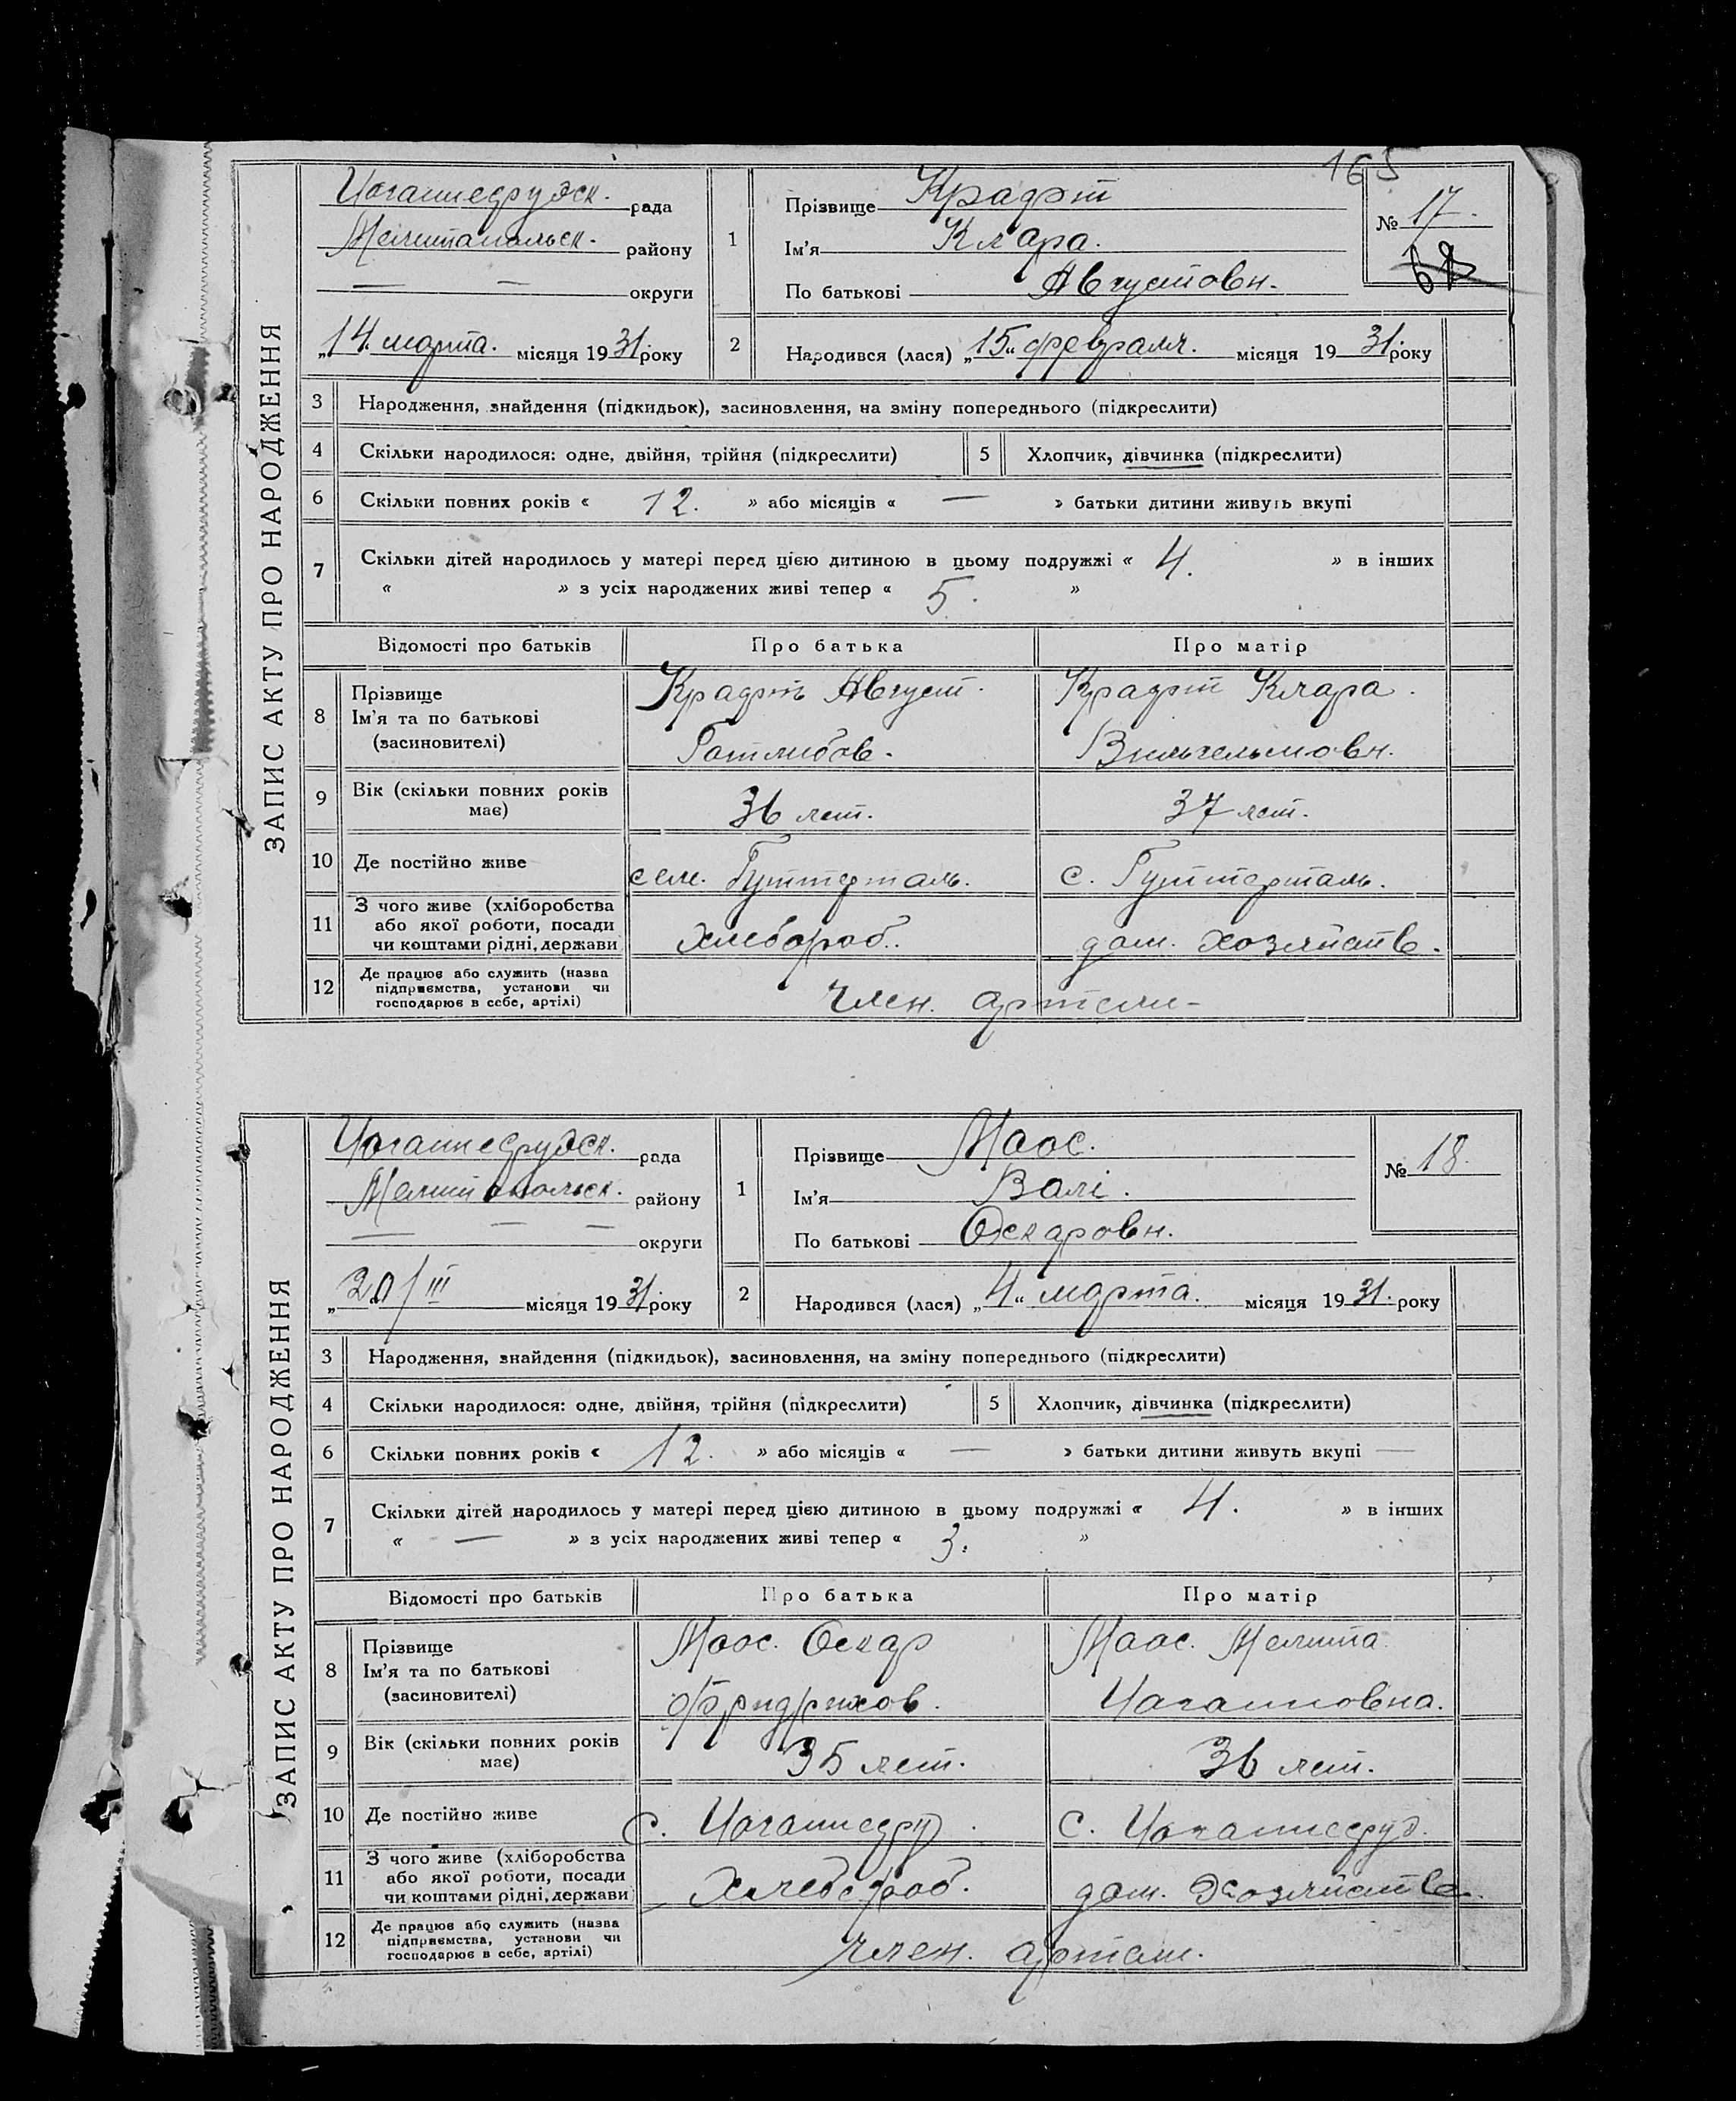 165
ЗАПИС АКТУ ПРО НАРОДЖЕННЯ
Иоганнесрудск. рада
Мелитопольск. району
— — округи
„14. марта. місяця 1931 року
1
Прізвище Крафт
Ім'я Клара.
По батькові Августовн.
№ 17.
2
Народився (лася) „15“ февраля. місяця 1931. року
3 Народження, знайдення (підкидьок), засиновлення, на зміну попереднього (підкреслити)
4 Скільки народилося: одне, двійня, трійня (підкреслити) 5 Хлопчик, дівчинка (підкреслити)
6 Скільки повних років « 12. » або місяців « — » батьки дитини живуть вкупі
7 Скільки дітей народилось у матері перед цією дитиною в цьому подружжі « 4. » в інших
« » з усіх народжених живі тепер « 5. »
Відомості про батьків Про батька Про матір
8 Прізвище
Ім'я та по батькові
(засиновителі)
Крафт Август.
Готлибов.
Крафт Клара.
Вильгельмовн.
9 Вік (скільки повних років
має)
36 лет. 37 лет.
10 Де постійно живе сел. Гуттерталь. с. Гуттерталь.
11 З чого живе (хліборобства
або якої роботи, посади
чи коштами рідні, держави
Хлебороб. дом. хозяйств.
12 Де працює або служить (назва
підприємства, установи чи
господарює в себе, артілі)
член. артели-
ЗАПИС АКТУ ПРО НАРОДЖЕННЯ
Иоганнесрудск. рада
Мелитопольск. району
— — — округи
„20/III місяця 1931 року
1
Прізвище Маос.
Ім'я Валі.
По батькові Оскаровн.
№ 18.
2
Народився (лася) „4“ марта. місяця 1931. року
3 Народження, знайдення (підкидьок), засиновлення, на зміну попереднього (підкреслити)
4 Скільки народилося: одне, двійня, трійня (підкреслити) 5 Хлопчик, дівчинка (підкреслити)
6 Скільки повних років « 12. » або місяців « — » батьки дитини живуть вкупі —
7 Скільки дітей народилось у матері перед цією дитиною в цьому подружжі « 4. » в інших
« — » з усіх народжених живі тепер « 3. »
Відомості про батьків Про батька Про матір
8 Прізвище
Ім'я та по батькові
(засиновителі)
Маос. Оскар
Фридрихов.
Маос. Мелита
Иоганновна.
9 Вік (скільки повних років
має)
35 лет. 36 лет.
10 Де постійно живе С. Иоганнесруд. С. Иоганнесруд.
11 З чого живе (хліборобства
або якої роботи, посади
чи коштами рідні, держави
Хлебороб. дом. Хозяйств.
12 Де працює або служить (назва
підприємства, установи чи
господарює в себе, артілі)
член. артели.